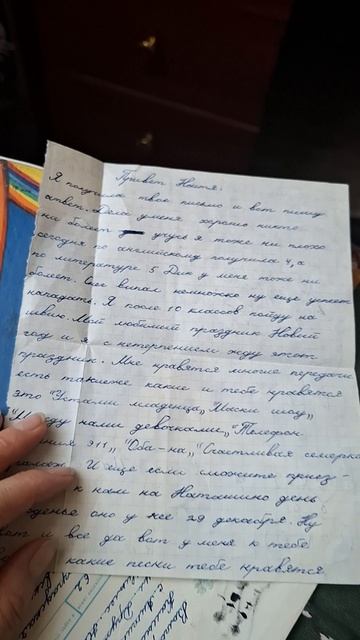 Привет Настя.
Я получила твоё письмо и вот пишу
ответ. Дела у меня хорошо никто
ни болеет учусь я тоже ни плохо
сегодня по английскому получила 4, а
по литературе 5. Дик у меня тоже ни
болеет. Снег выпал немножко ну ещё успеет
нападать. Я после 10 классов пойду на
швию. Мой любимый праздник Новый
год и я с нетерпением жду этот
праздник. Мне нравятся многие передачи
есть такиеже какие и тебе нравятся
это "Устами младенца,, "Маски шоу,,
"Между нами девочками,, "Телефон
ния 911,, "Оба-на,, "Счастливая семёрка
И ещё если сможите приез-
к нам на Наташино день
денье оно у неё 29 декабря. Ну
вот и все да вот у меня к тебе
какие песни тебе нравятся